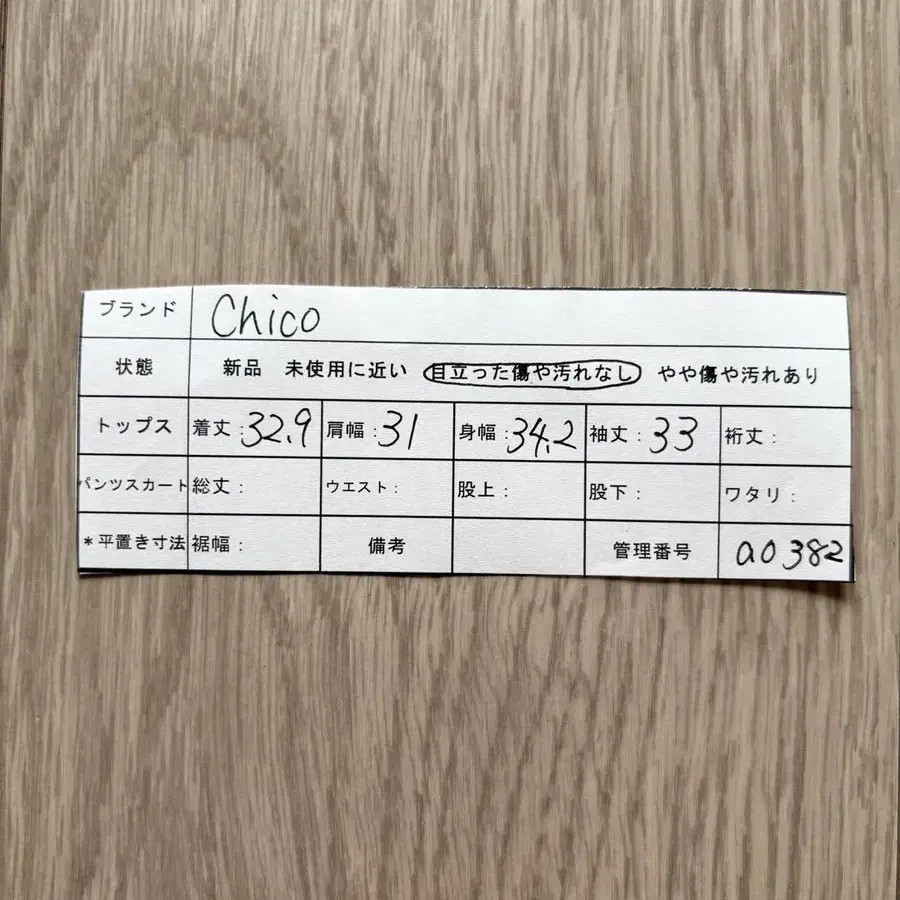 ブランド Chico
状態 新品 未使用に近い 目立った傷や汚れなし やや傷や汚れあり
トップス 着丈:32.9 肩幅:31 身幅:34.2 袖丈:33 裄丈:
パンツスカート 総丈: ウエスト: 股上: 股下: ワタリ:
*平置き寸法 裾幅: 備考 管理番号 a0382